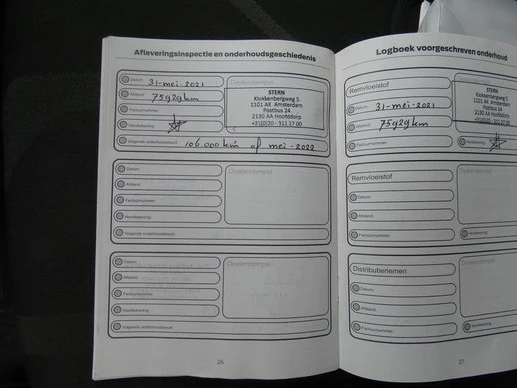 Afleveringsinspectie en onderhoudsgeschiedenis
Datum: 31-mei-2021
Afstand: 75929km
Factuurnummer:
Handtekening:
Volgende onderhoudsbeurt: 106.000 km of mei-2022
Dealerstempel
STERN
Klokkenbergweg 5
1101 AK Amsterdam
Postbus 24
2130 AA Hoofddorp
Datum:
Afstand:
Factuurnummer:
Handtekening:
Volgende onderhoudsbeurt:
Dealerstempel
Datum:
Afstand:
Factuurnummer:
Handtekening:
Volgende onderhoudsbeurt:
Dealerstempel
26
Logboek voorgeschreven onderhoud
Remvloeistof
Datum: 31-mei-2021
Afstand: 75929km
Factuurnummer:
Handtekening:
Dealerstempel
STERN
Klokkenbergweg 5
1101 AK Amsterdam
Postbus 24
2130 AA Hoofddorp
Remvloeistof
Datum:
Afstand:
Factuurnummer:
Handtekening:
Distributieriemen
Datum:
Afstand:
Factuurnummer:
Handtekening:
27